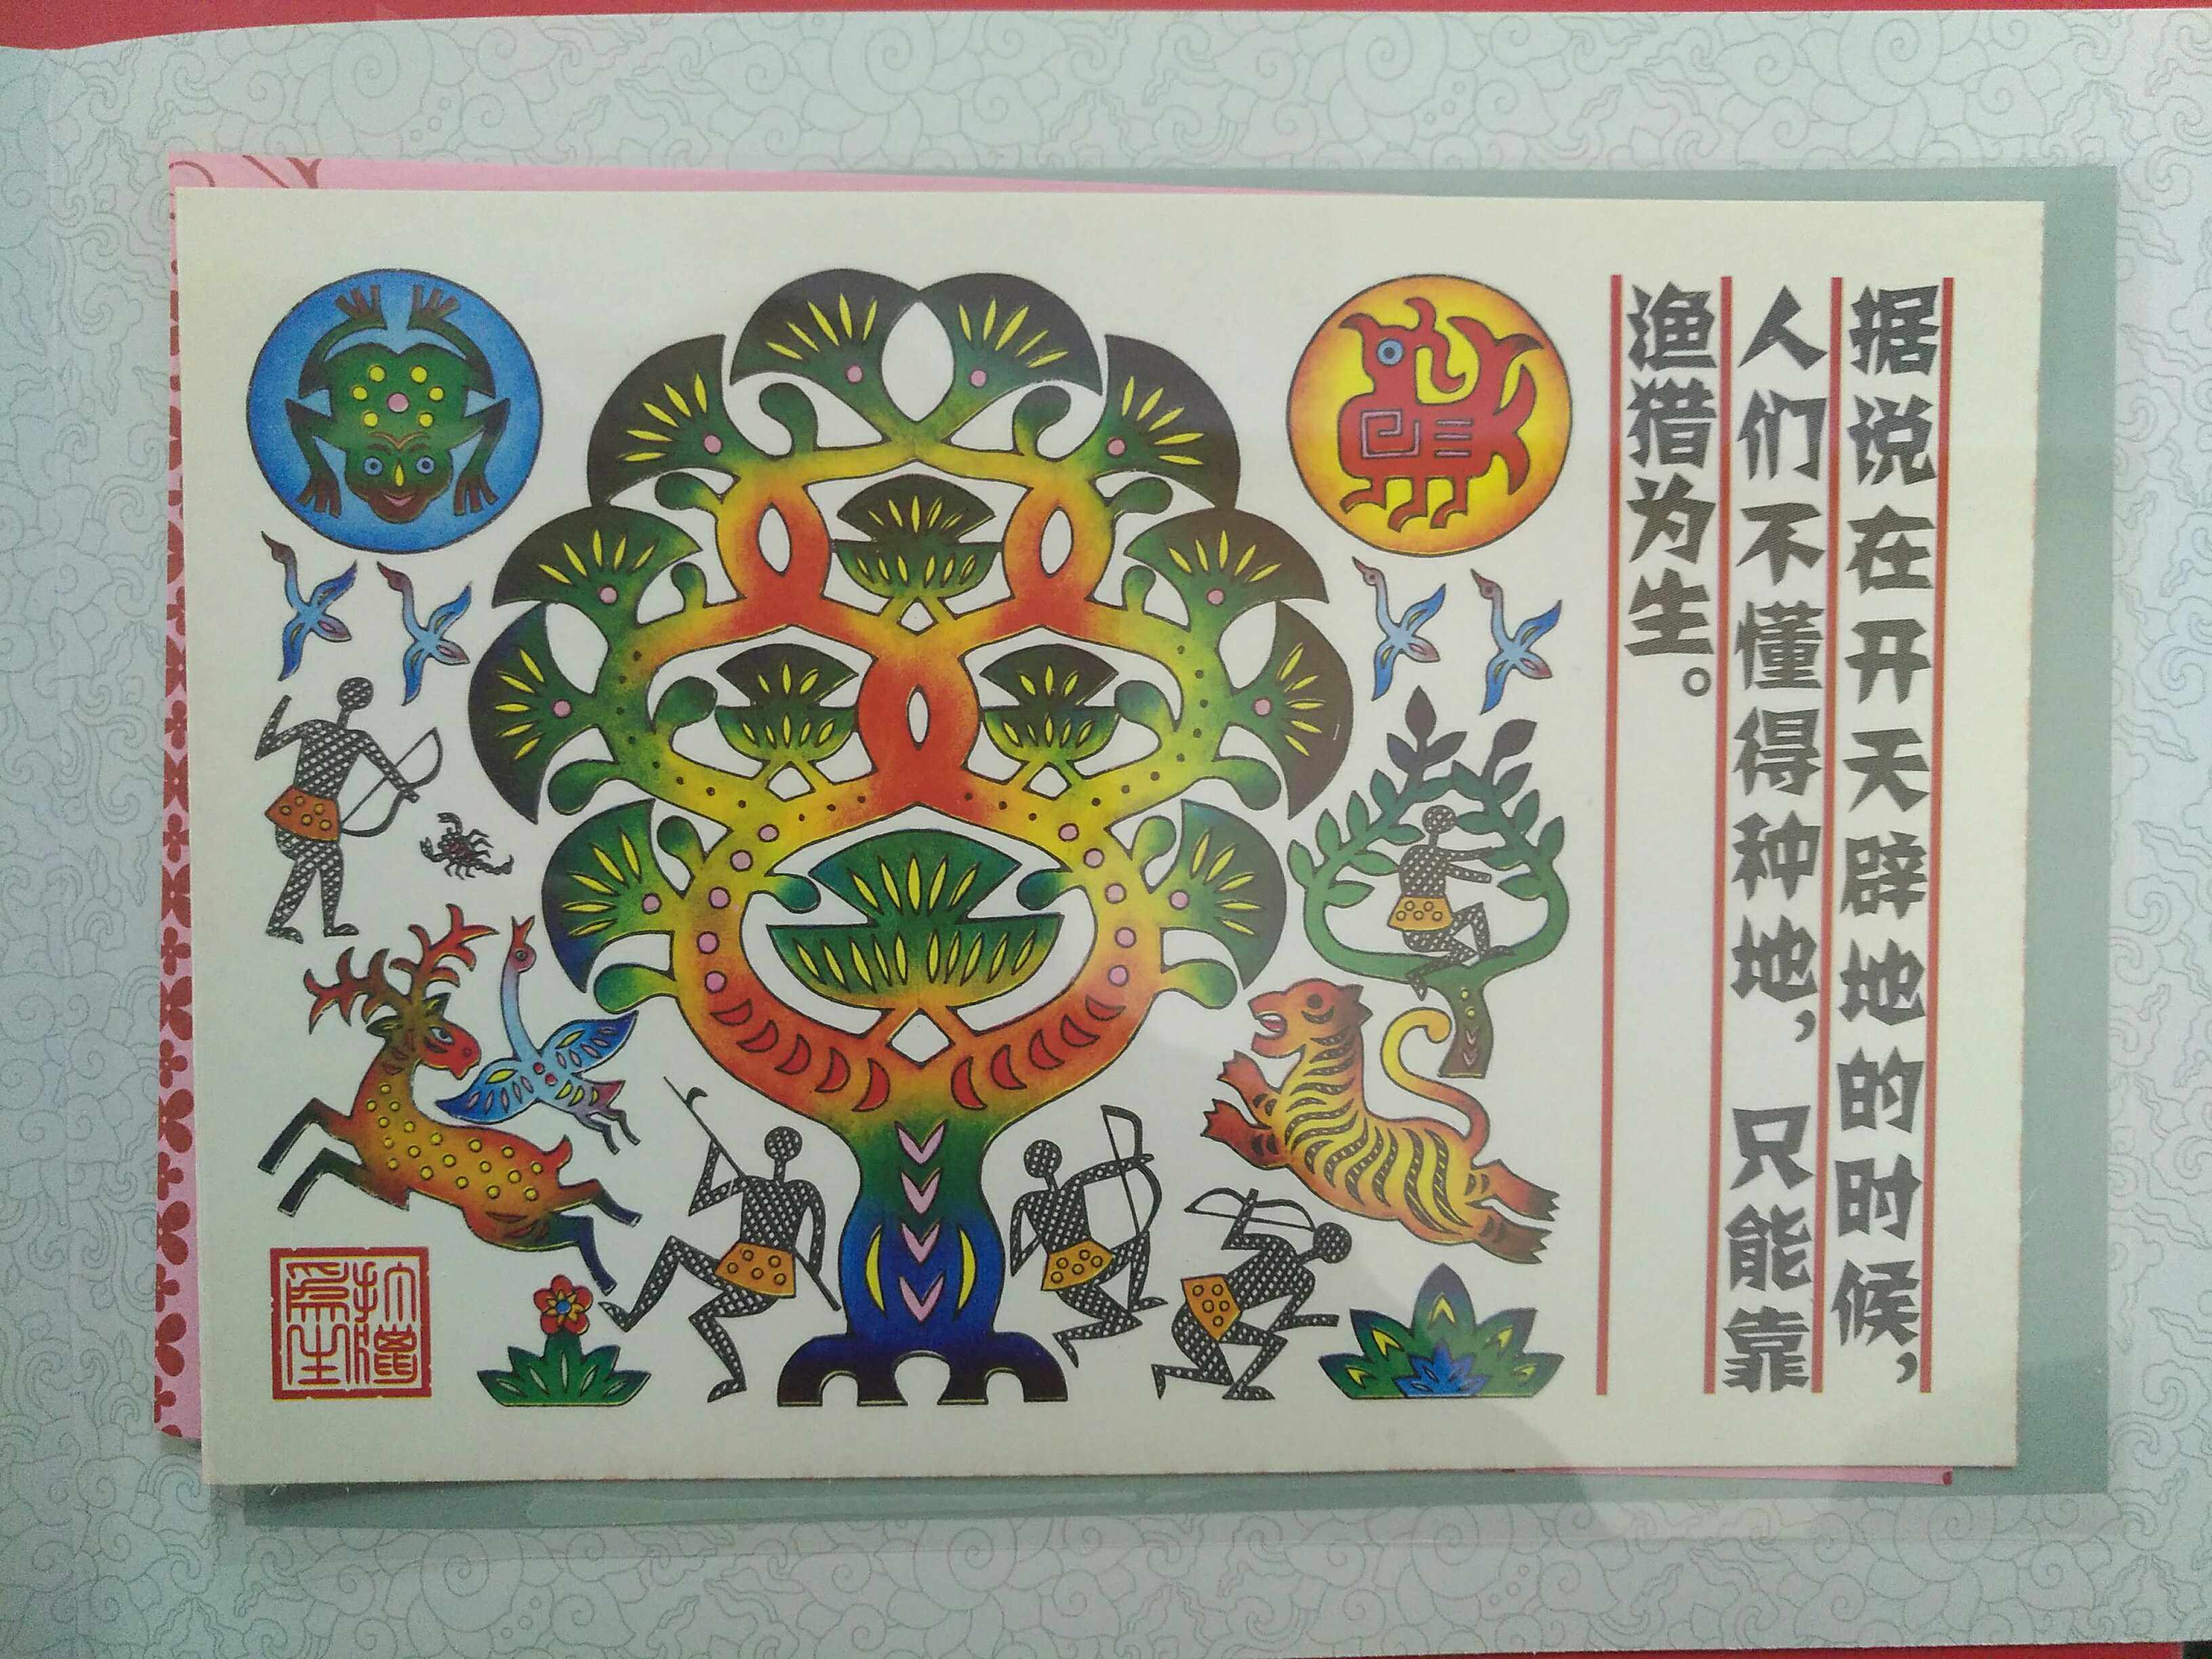 据说在开天辟地的时候，
人们不懂得种地，只能靠
渔猎为生。